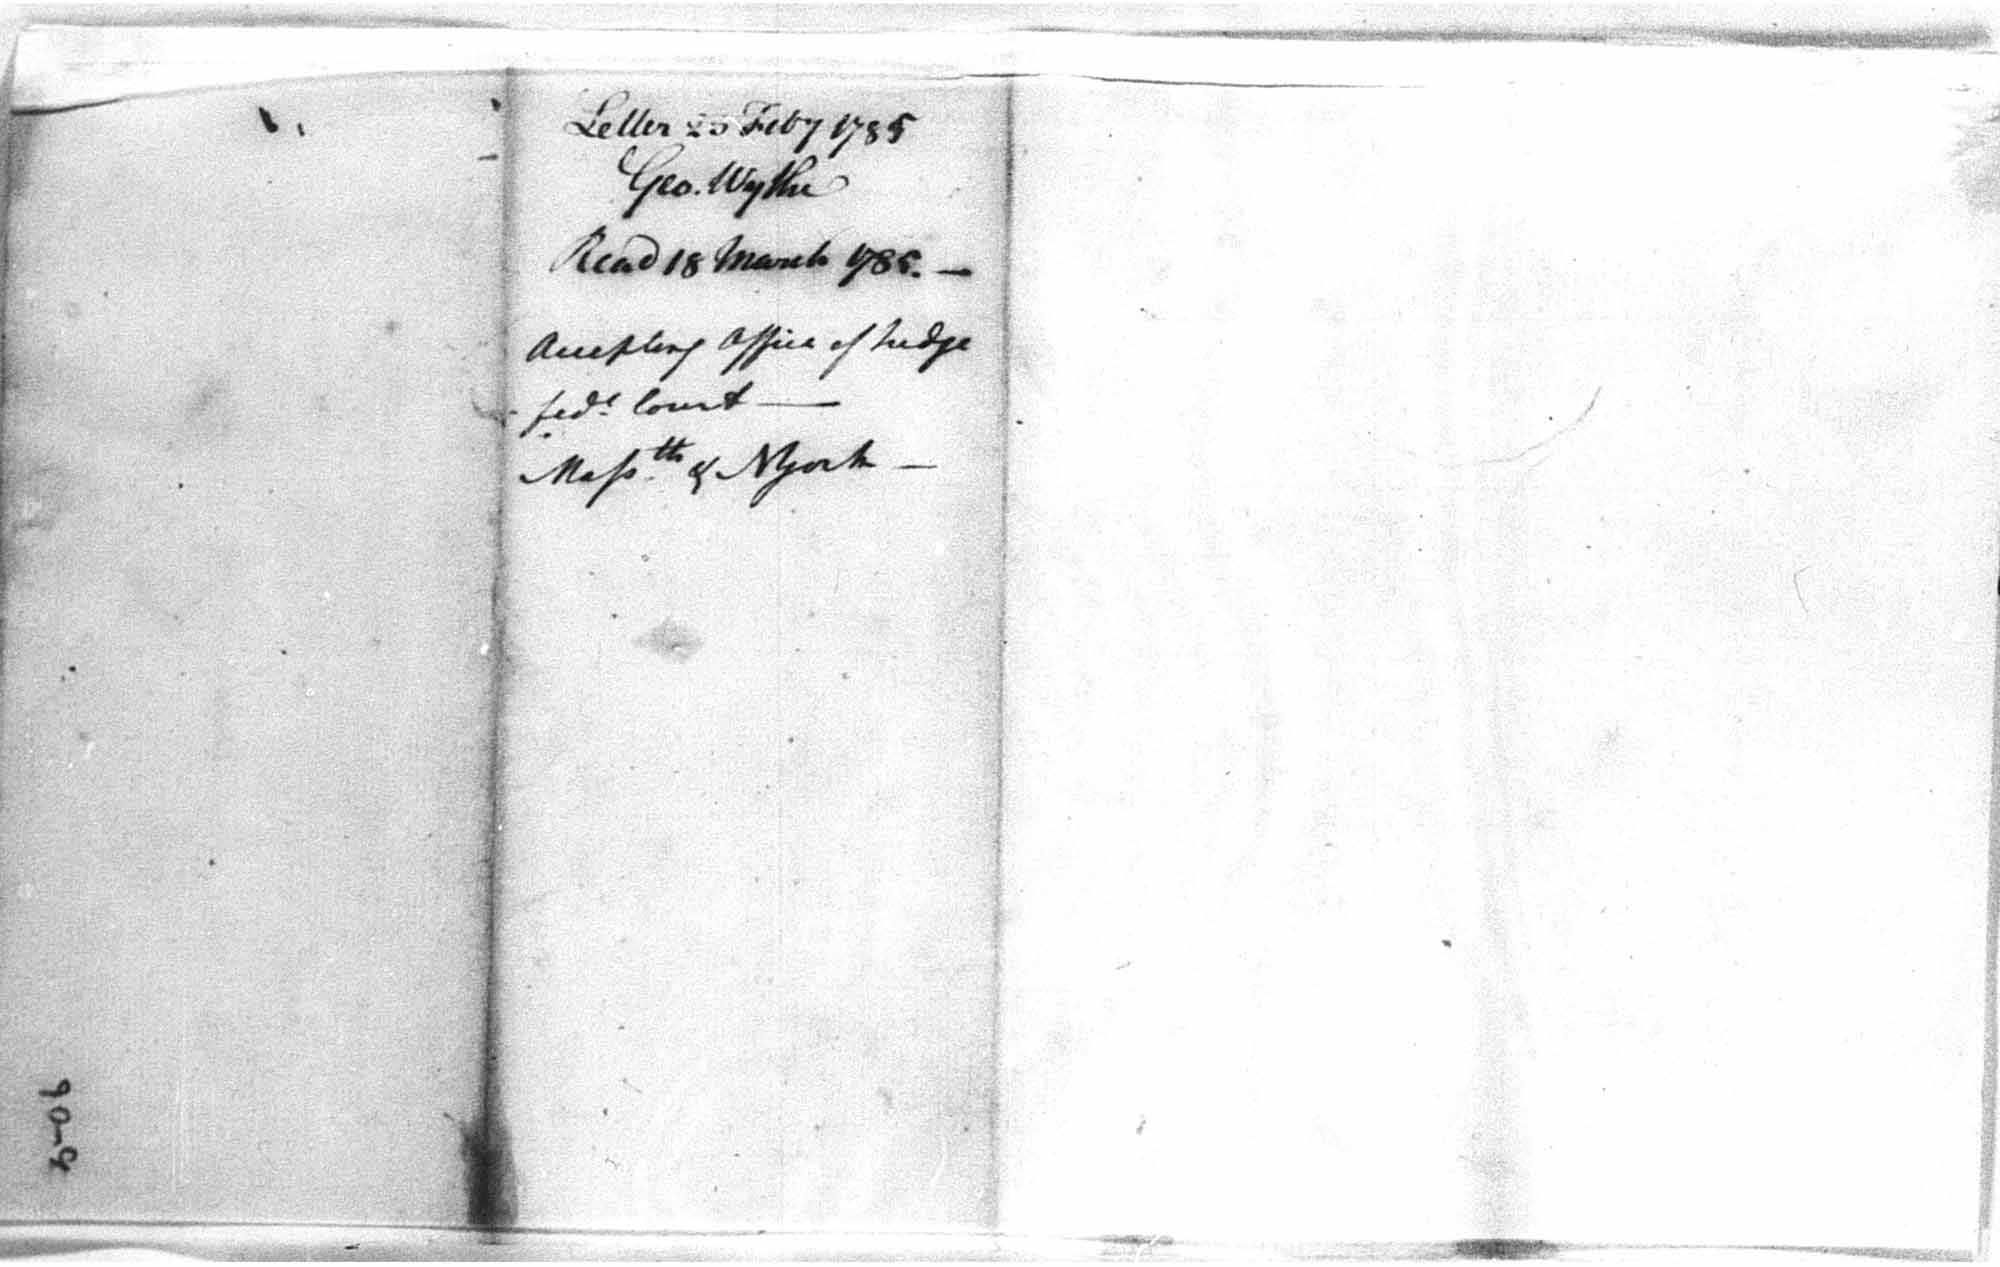 Letter 25 Feby 1785
Geo. Wythe
Read 18 March 1785. —
Accepting Office of Judge
fedl. Court —
Massts. & NYork —